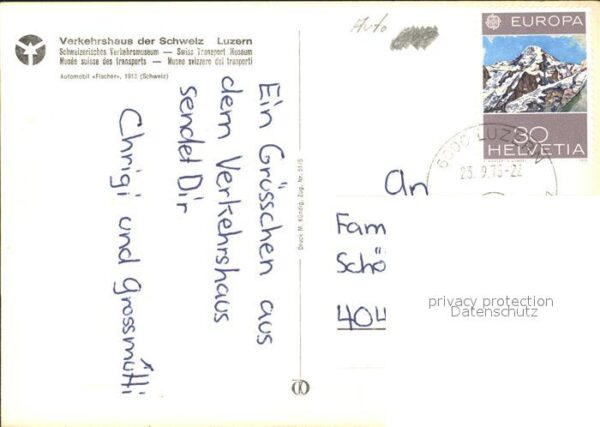 Verkehrshaus der Schweiz Luzern
Schweizerisches Verkehrsmuseum — Swiss Transport Museum
Musée suisse des transports — Museo svizzero dei trasporti
Automobil «Fischer», 1913 (Schweiz)
Ein Grüsschen aus
dem Verkehrshaus
sendet Dir
Chrigi und Grossmütti
Druck M. Kündig, Zug, Nr. 51/5
Auto
EUROPA
30
HELVETIA
6000 LUZERN
An
Fam
Schö
404
privacy protection
Datenschutz